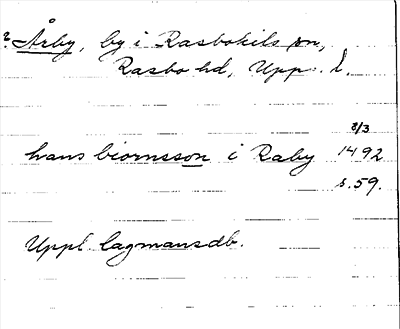 ? Årby, by i Rasbokils sn,
Rasbo hd, Uppl. l.
3/3
hans biornsson i Raby 1492
s. 59.
Uppl. lagmansdb.